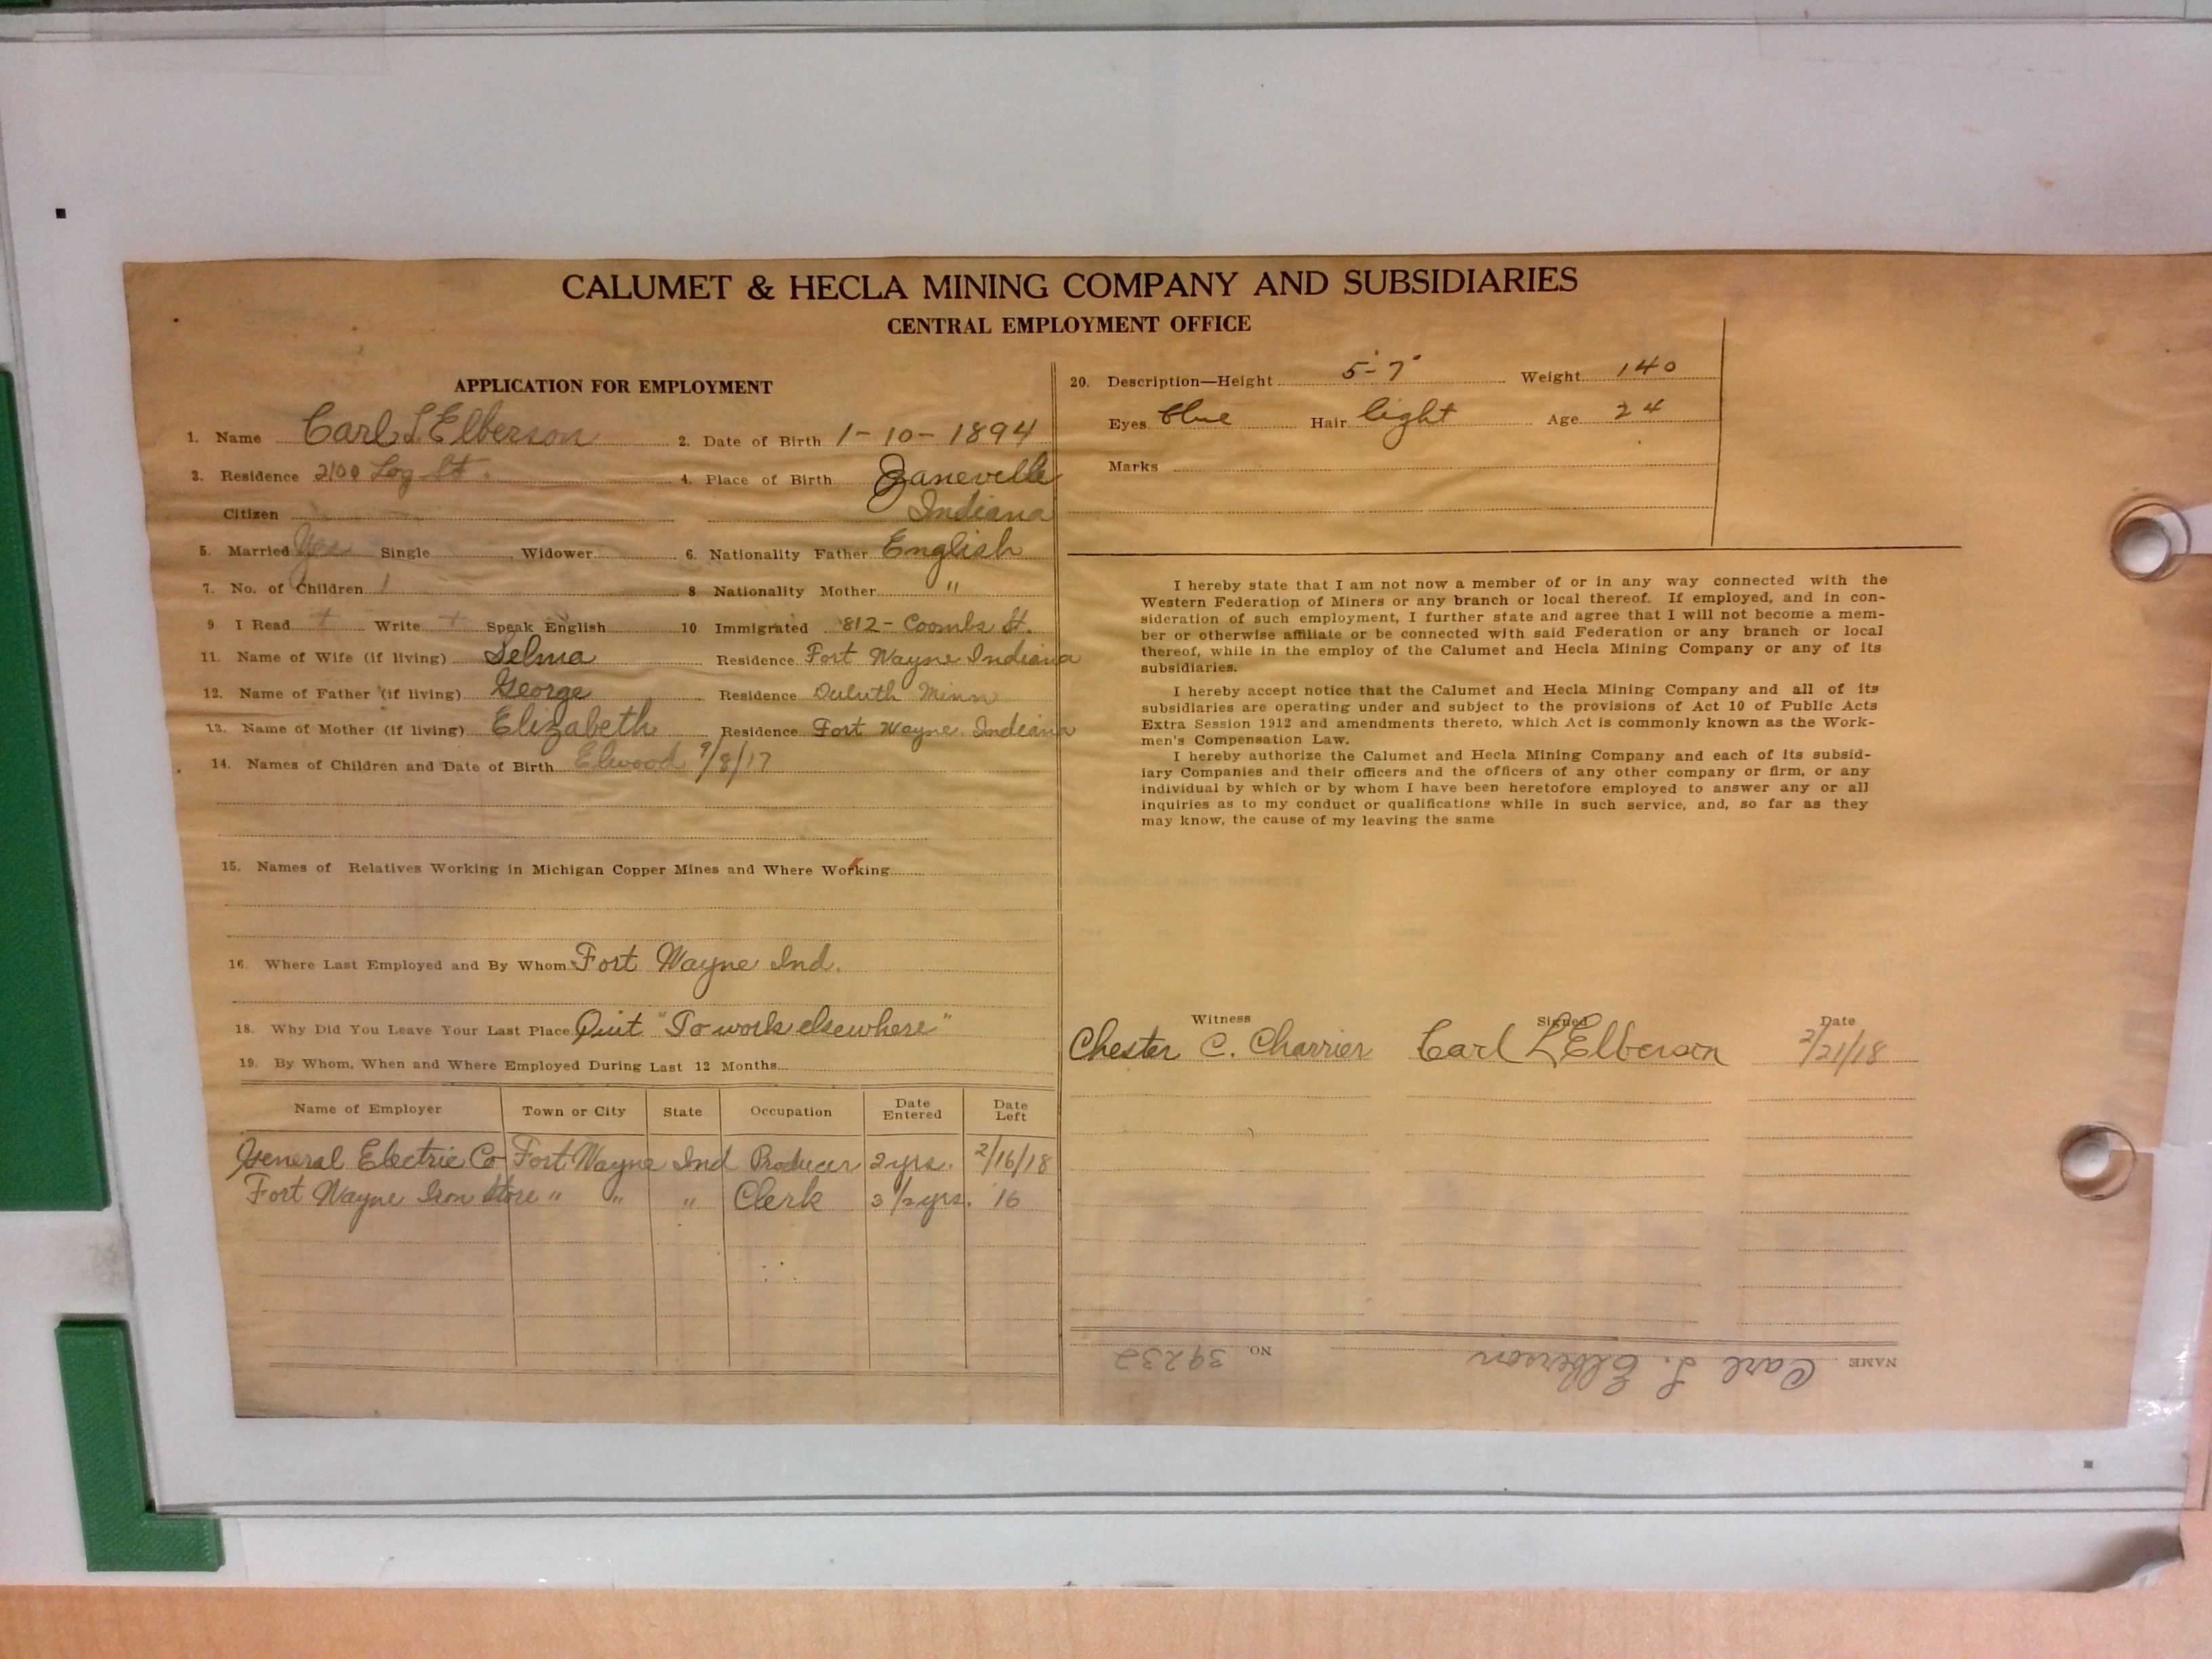 CALUMET & HECLA MINING COMPANY AND SUBSIDIARIES
CENTRAL EMPLOYMENT OFFICE
APPLICATION FOR EMPLOYMENT
1. Name Carl L Elberson 2. Date of Birth 1-10-1894
3. Residence 2100 Log St. 4. Place of Birth Zaneville
Citizen Indiana
5. Married Yes Single Widower 6. Nationality Father English
7. No. of Children 1 8 Nationality Mother "
9. I Read + Write + Speak English 10. Immigrated 812- Coombs St.
11. Name of Wife (if living) Selma Residence Fort Wayne Indiana
12. Name of Father (if living) George Residence Duluth Minn
13. Name of Mother (if living) Elizabeth Residence Fort Wayne. Indiana
14. Names of Children and Date of Birth Elwood 9/8/17
15. Names of Relatives Working in Michigan Copper Mines and Where Working
16. Where Last Employed and By Whom Fort Wayne Ind.
18. Why Did You Leave Your Last Place Quit "To work elsewhere"
19. By Whom, When and Where Employed During Last 12 Months
Name of Employer Town or City State Occupation Date Entered Date Left
General Electric Co Fort Wayne Ind Producer 2 yrs. 2/16/18
Fort Wayne Iron Store " " " Clerk 3 1/2 yrs. 16
20. Description—Height 5'-7" Weight 140
Eyes blue Hair light Age 24
Marks
I hereby state that I am not now a member of or in any way connected with the
Western Federation of Miners or any branch or local thereof. If employed, and in con-
sideration of such employment, I further state and agree that I will not become a mem-
ber or otherwise affiliate or be connected with said Federation or any branch or local
thereof, while in the employ of the Calumet and Hecla Mining Company or any of its
subsidiaries.
I hereby accept notice that the Calumet and Hecla Mining Company and all of its
subsidiaries are operating under and subject to the provisions of Act 10 of Public Acts
Extra Session 1912 and amendments thereto, which Act is commonly known as the Work-
men's Compensation Law.
I hereby authorize the Calumet and Hecla Mining Company and each of its subsid-
iary Companies and their officers and the officers of any other company or firm, or any
individual by which or by whom I have been heretofore employed to answer any or all
inquiries as to my conduct or qualifications while in such service, and, so far as they
may know, the cause of my leaving the same
Witness Signed Date
Chester C. Charrier Carl L Elberson 2/21/18
NAME Carl L. Elberson NO. 39232